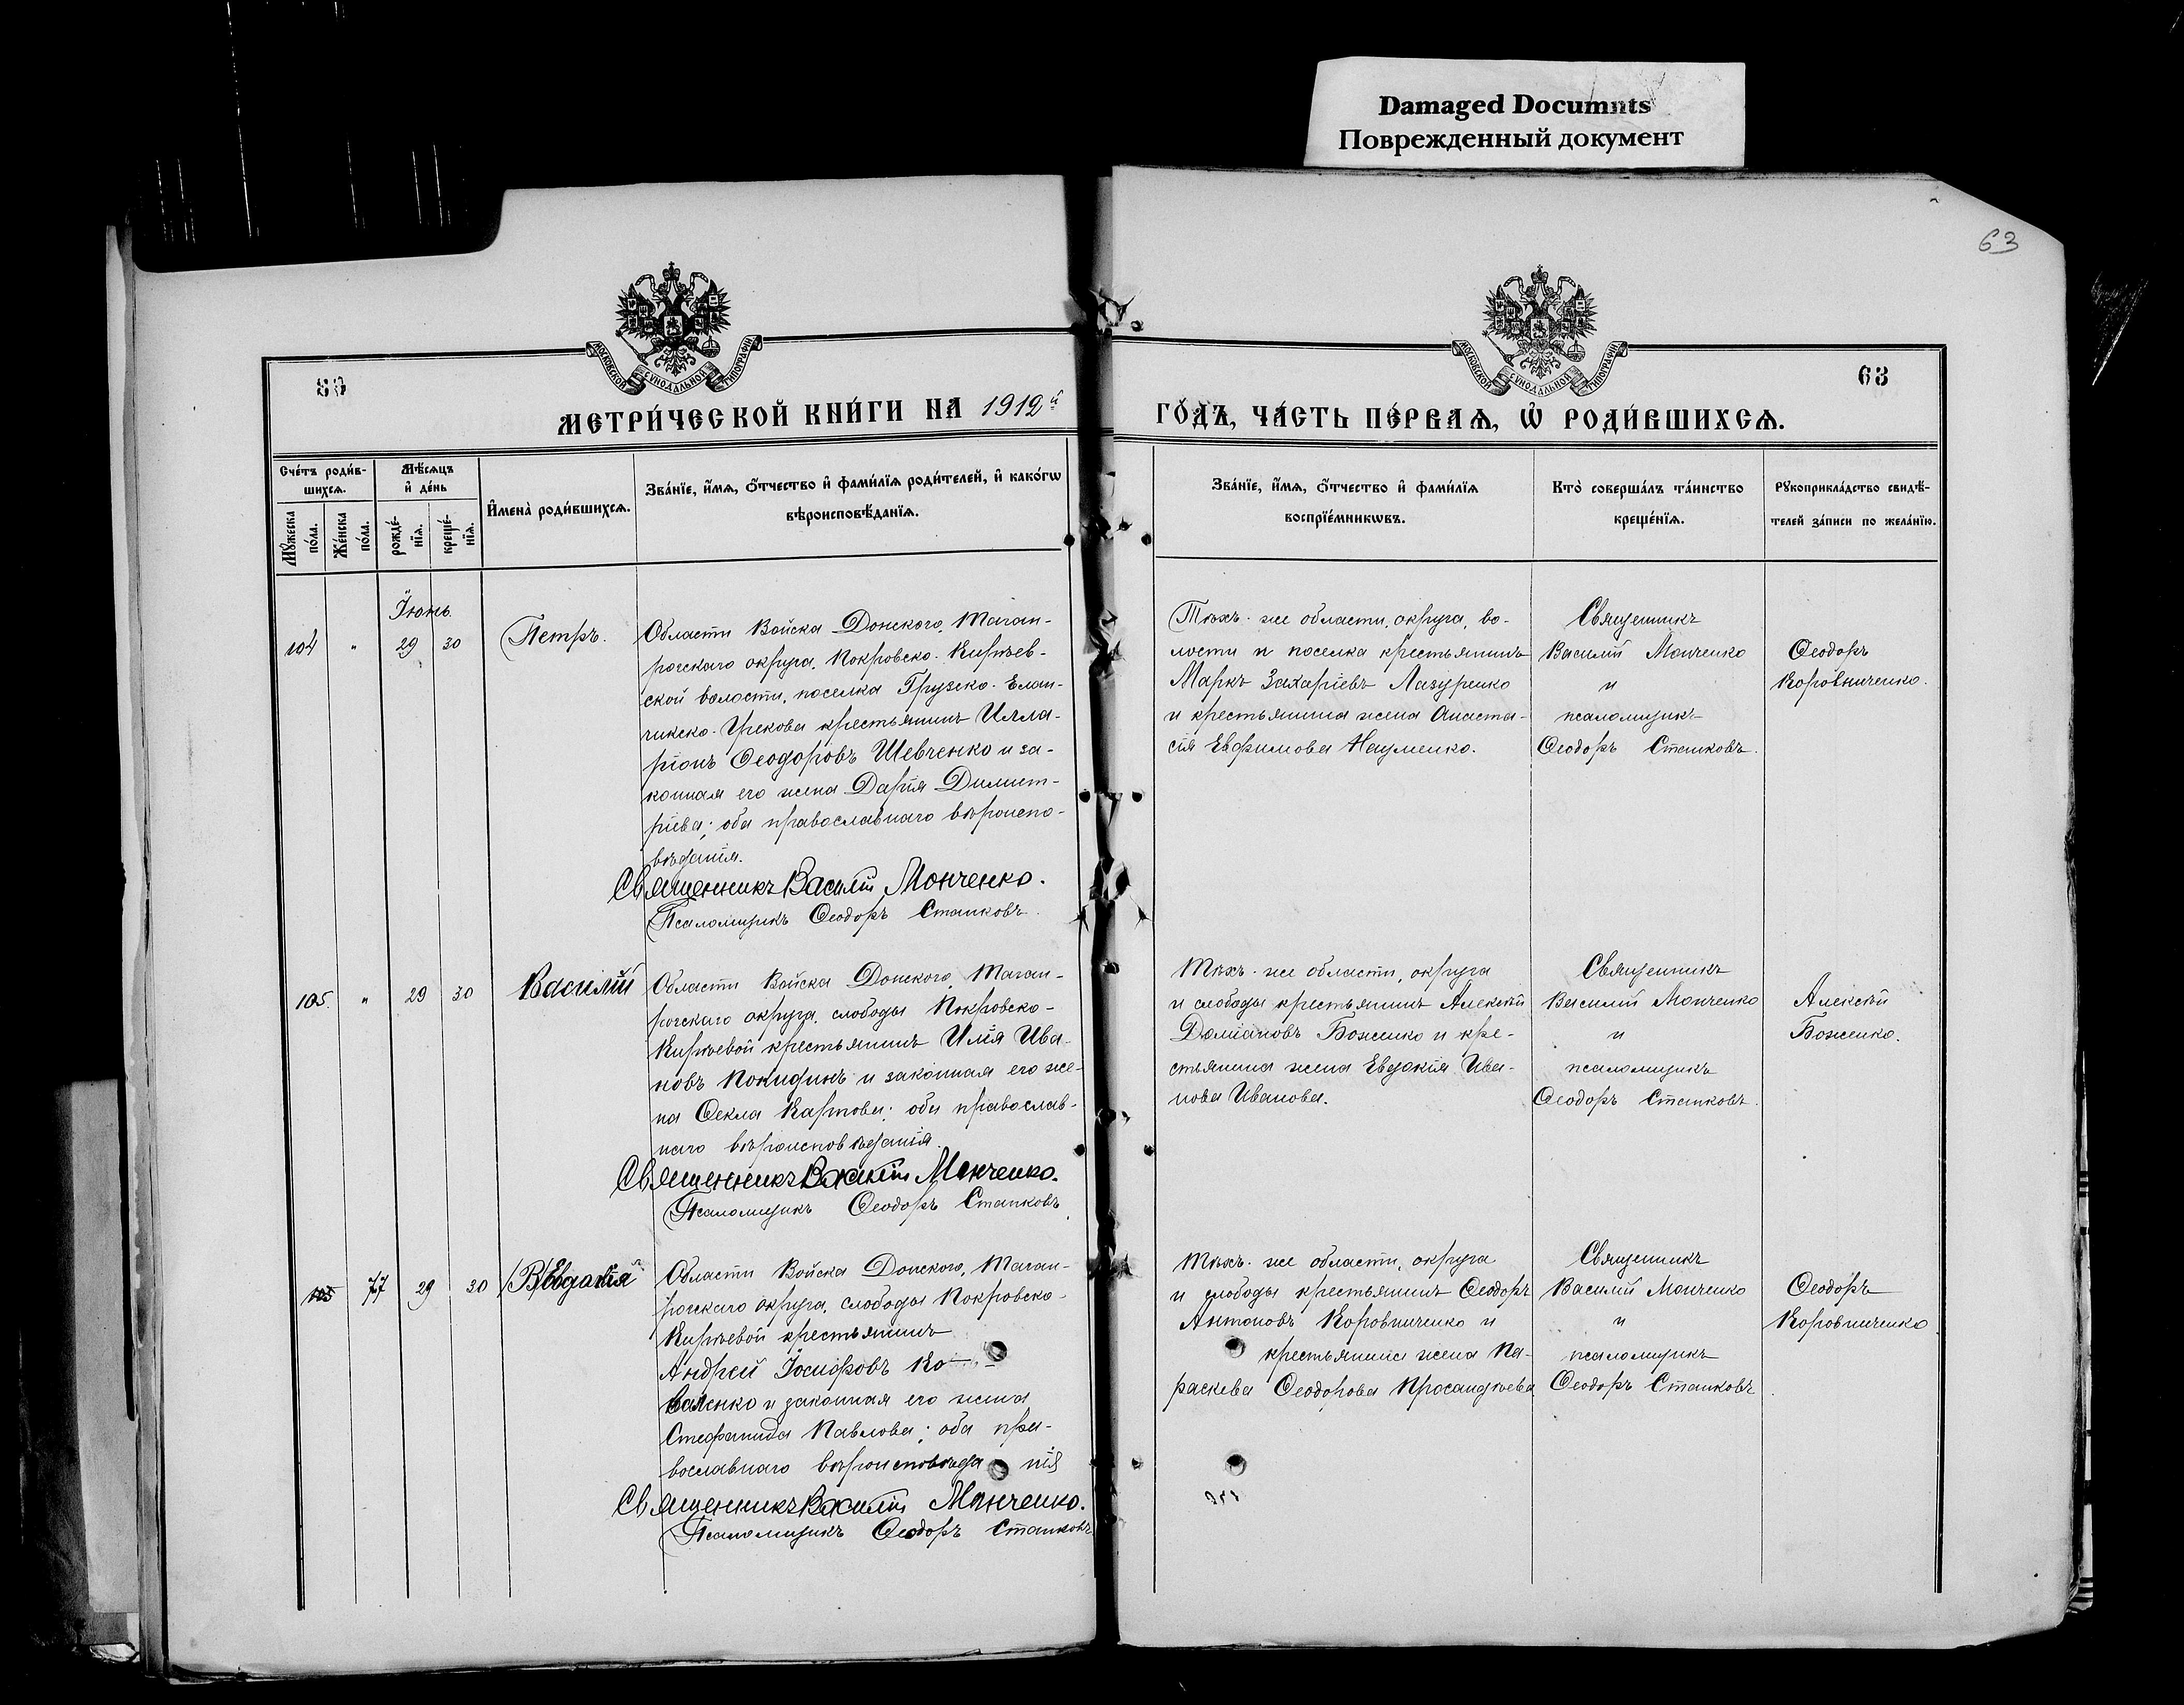 Damaged Documnts
Поврежденный документ
63
63
МЕТРИ́ЧЕСКОЙ КНИ́ГИ НА 1912й
ГО́ДЪ, ЧА́СТЬ ПЕ́РВАѦ, Ѡ҆ РОДИ́ВШИХСѦ.
МОСКОВСКОЙ СѴНОДАЛЬНОЙ ТИПОГРАФІИ
МОСКОВСКОЙ СѴНОДАЛЬНОЙ ТИПОГРАФІИ
Сче́тъ роди́в-
шихсѧ.
Мꙋ́жеска по́ла.
Же́нска по́ла.
Мѣ́сѧцъ
и҆ де́нь
рожде́-
нїѧ.
креще́-
нїѧ.
И҆мена̀ роди́вшихсѧ.
Зва́нїе, и҆́мѧ, ѻ҆́тчество и҆ фами́лїѧ роди́телей, и҆ како́гѡ
вѣроисповѣ́данїѧ.
Зва́нїе, и҆́мѧ, ѻ҆́тчество и҆ фами́лїѧ
воспрїе́мникѡвъ.
Кто̀ соверша́лъ та́инство
креще́нїѧ.
Рꙋкоприкла́дство свидѣ́-
телей за́писи по жела́нїю.
Іюнь.
104 " 29 30 Петръ.
Области Войска Донского, Таган-
рогскаго округа, Покровско-Киръев-
ской волости, поселка Грузско-Елан-
чикско-Грекова крестьянинъ Илла-
ріонъ Ѳеодоровъ Шевченко и за-
конная его жена Дарія Димит-
ріева; оба православнаго вѣроиспо-
вѣданія.
Священникъ Василій Монченко.
Псаломщикъ Ѳеодоръ Станковъ.
Тѣхъ-же области, округа, во-
лости и поселка крестьянинъ
Маркъ Захаріевъ Лазуренко
и крестьянина жена Анаста-
сія Евфимова Науменко.
Священникъ
Василій Монченко
и
псаломщикъ
Ѳеодоръ Станковъ.
Ѳеодоръ
Коровниченко.
105. " 29 30 Василій
Области Войска Донского, Таган-
рогскаго округа, слободы Покровско-
Киръевой крестьянинъ Илія Ива-
новъ Покидинъ и законная его же-
на Ѳекла Карпова; оба православ-
наго вѣроисповѣданія.
Священникъ Василій Монченко.
Псаломщикъ Ѳеодоръ Станковъ.
Тѣхъ-же области, округа
и слободы крестьянинъ Алексѣй
Даміановъ Боженко и кре-
стьянина жена Евдокія Ива-
нова Иванова.
Священникъ
Василій Монченко
и
псаломщикъ
Ѳеодоръ Станковъ.
Алексѣй
Боженко.
105 77 29 30 Евдокія
Области Войска Донского, Таган-
рогскаго округа, слободы Покровско-
Киръевой крестьянинъ
Андрей Іосифовъ Ко-
валенко и законная его жена
Стефанида Павлова; оба пра-
вославнаго вѣроисповѣданія
Священникъ Василій Монченко.
Псаломщикъ Ѳеодоръ Станковъ
Тѣхъ-же области, округа
и слободы крестьянинъ Ѳеодоръ
Антоновъ Коровниченко и
крестьянина жена Па-
раскева Ѳеодорова Просандѣева
Священникъ
Василій Монченко
и
псаломщикъ
Ѳеодоръ Станковъ.
Ѳеодоръ
Коровниченко.